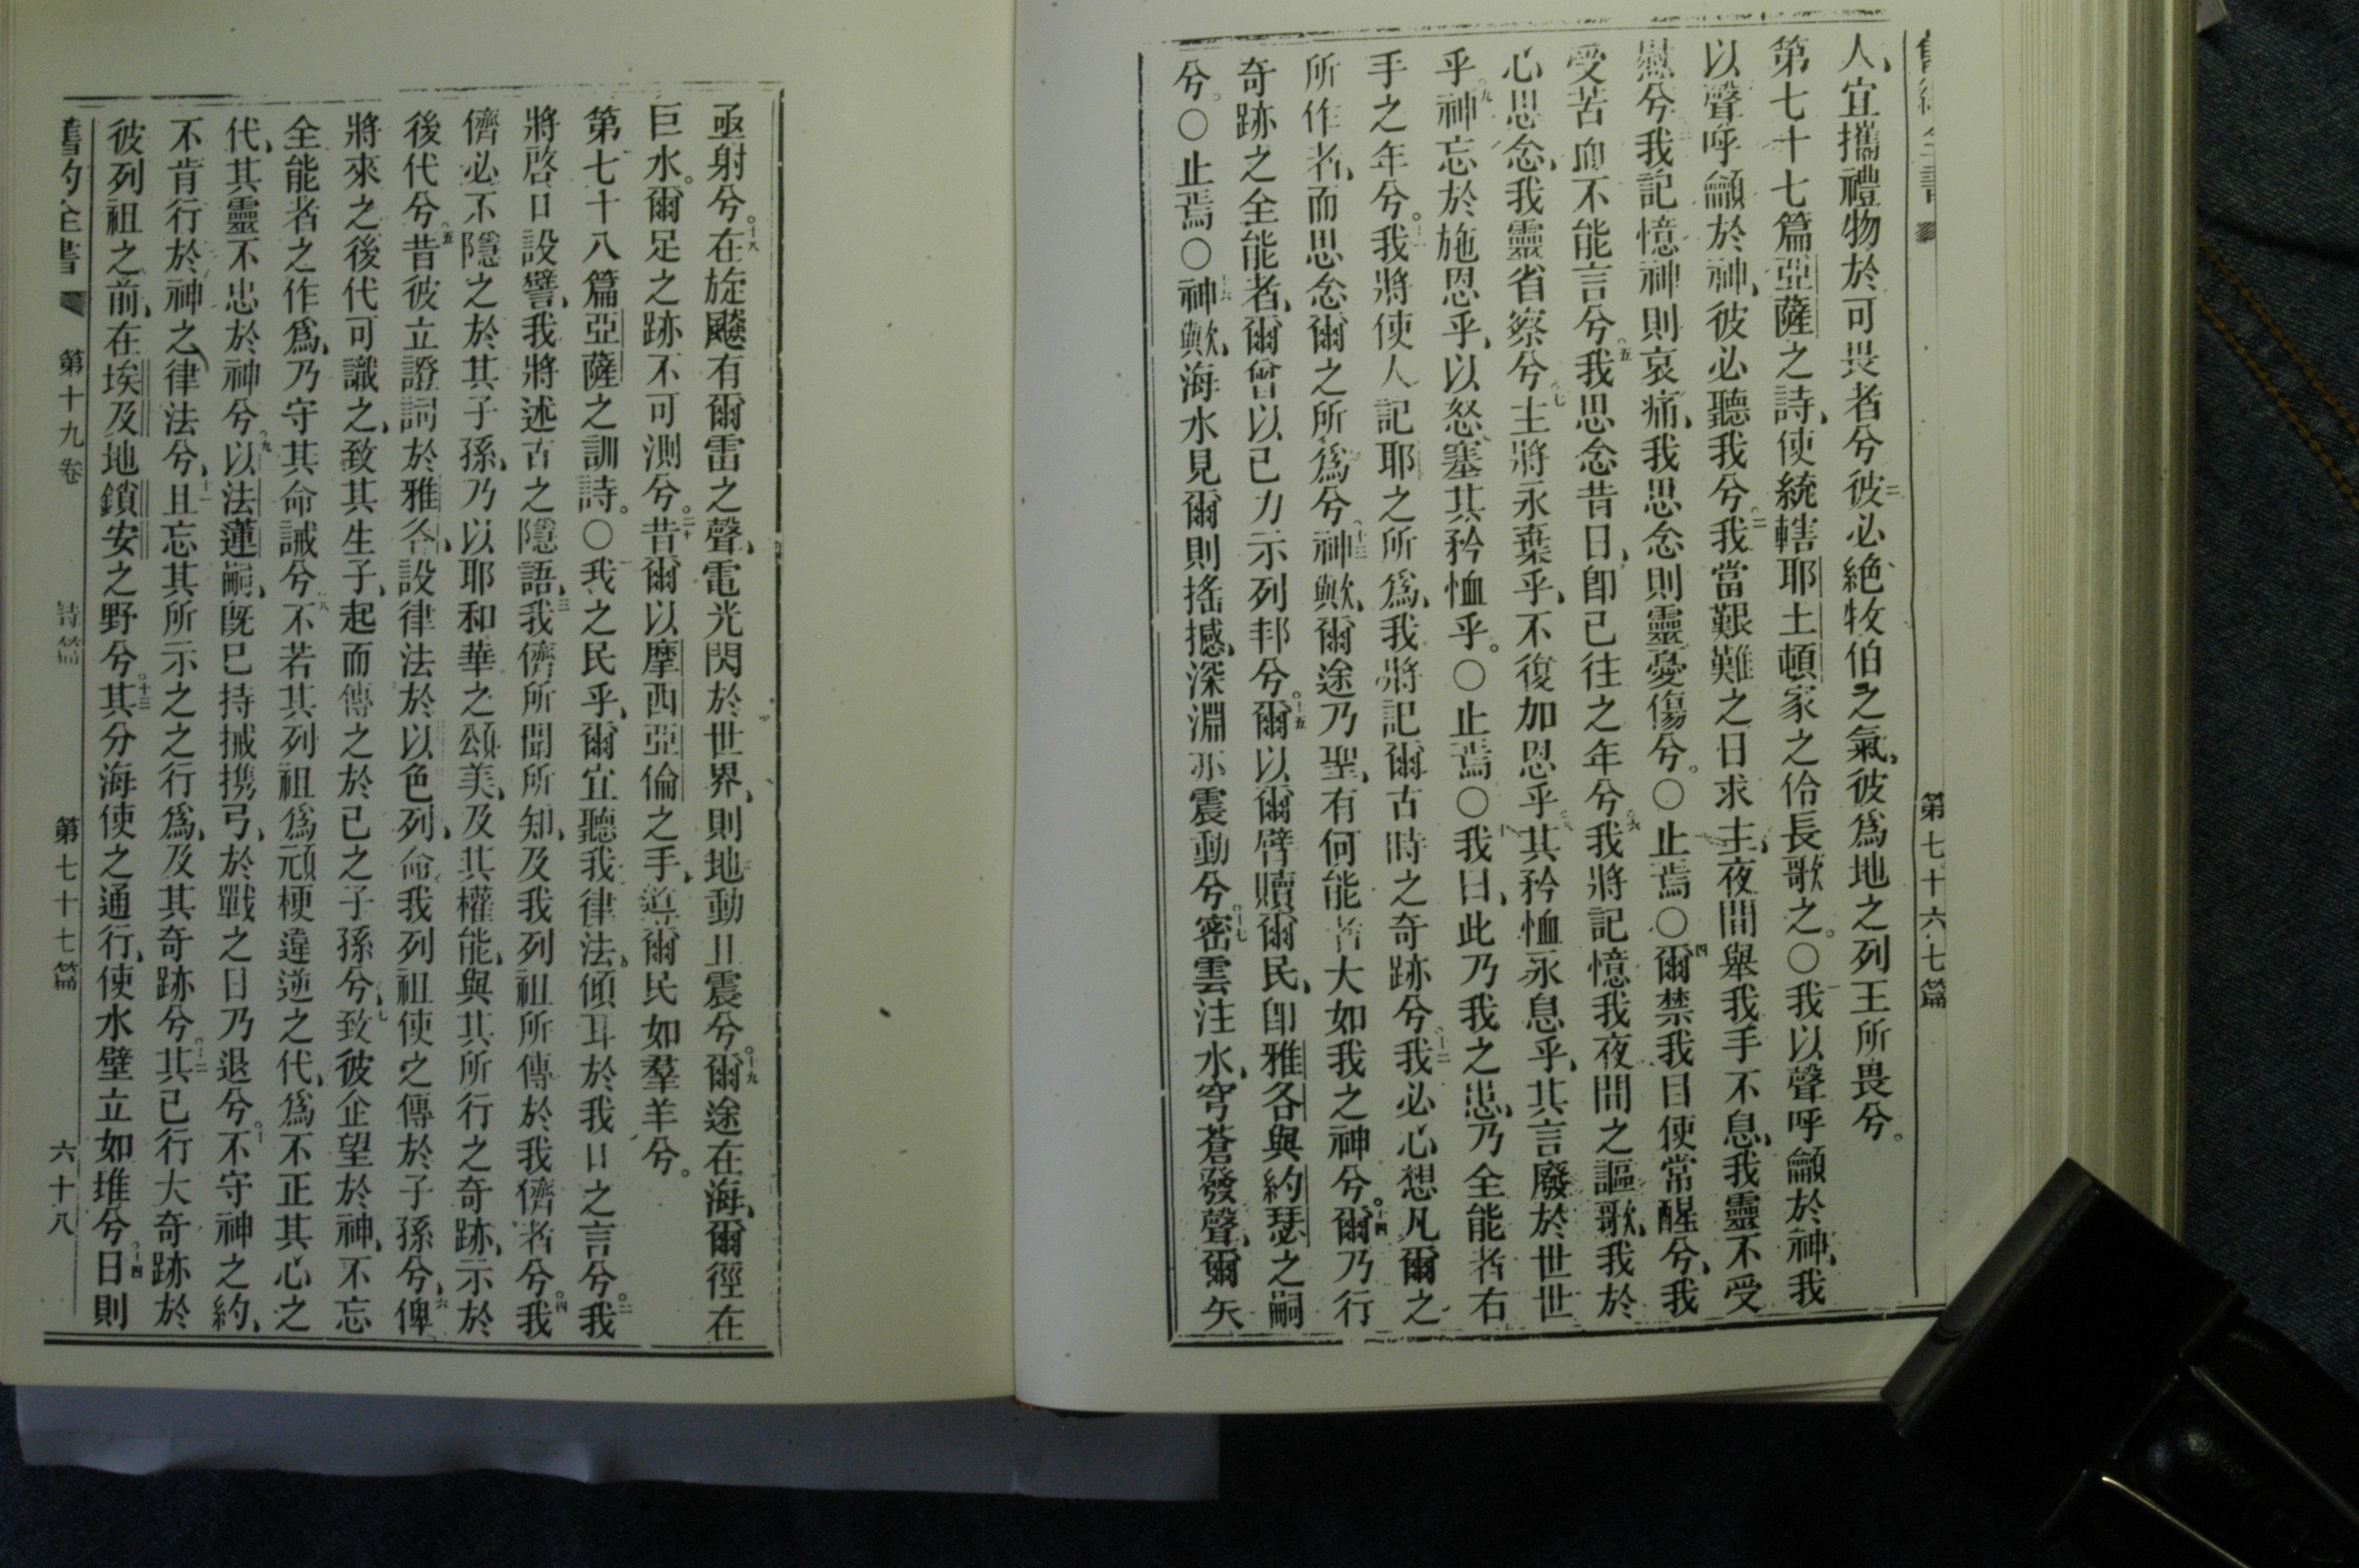 第七十六七篇
人、宜攜禮物於可畏者兮、二彼必絶牧伯之氣、彼爲地之列王所畏兮。
第七十七篇亞薩之詩、使統轄耶土頓家之伶長歌之。○一我以聲呼籲於神、我
以聲呼籲於神、彼必聽我兮、二我當艱難之日求主、夜間舉我手不息、我靈不受
慰兮、三我記憶神則哀痛、我思念則靈憂傷兮。○止焉○四爾禁我目使常醒兮、我
受苦而不能言兮、五我思念昔日、即已往之年兮、六我將記憶我夜間之謳歌、我於
心思念、我靈省察兮、七主將永棄乎、不復加恩乎、八其矜恤永息乎、其言廢於世世
乎、九神忘於施恩乎、以怒塞其矜恤乎。○止焉○十我曰、此乃我之患、乃全能者右
手之年兮。十一我將使人記耶之所爲、我將記爾古時之奇跡兮、十二我必心想凡爾之
所作者、而思念爾之所爲兮、十三神歟、爾途乃聖、有何能者大如我之神兮。十四爾乃行
奇跡之全能者、爾曾以己力示列邦兮。十五爾以爾臂贖爾民、即雅各與約瑟之嗣
兮。○止焉○十六神歟、海水見爾則搖撼、深淵亦震動兮。十七密雲注水、穹蒼發聲、爾矢
亟射兮。十八在旋飈有爾雷之聲、電光閃於世界、則地動且震兮。十九爾途在海、爾徑在
巨水。爾足之跡不可測兮。二十昔爾以摩西亞倫之手、導爾民如羣羊兮。
第七十八篇亞薩之訓詩。○一我之民乎、爾宜聽我律法、傾耳於我口之言兮。二我
將啓口設譬、我將述古之隱語、三我儕所聞所知、及我列祖所傳於我儕者兮。四我
儕必不隱之於其子孫、乃以耶和華之頌美、及其權能、與其所行之奇跡、示於
後代兮。五昔彼立證詞於雅各、設律法於以色列、命我列祖使之傳於子孫兮、六俾
將來之後代可識之、致其生子、起而傳之於己之子孫兮、七致彼企望於神、不忘
全能者之作爲、乃守其命誡兮、八不若其列祖爲頑梗違逆之代、爲不正其心之
代、其靈不忠於神兮、九以法蓮嗣、既已持械携弓、於戰之日乃退兮。十不守神之約、
不肯行於神之律法兮、十一且忘其所示之之行爲、及其奇跡兮。十二其已行大奇跡於
彼列祖之前、在埃及地鎖安之野兮。十三其分海使之通行、使水壁立如堆兮。十四日則
舊約全書 第十九卷 詩篇 第七十七篇 六十八